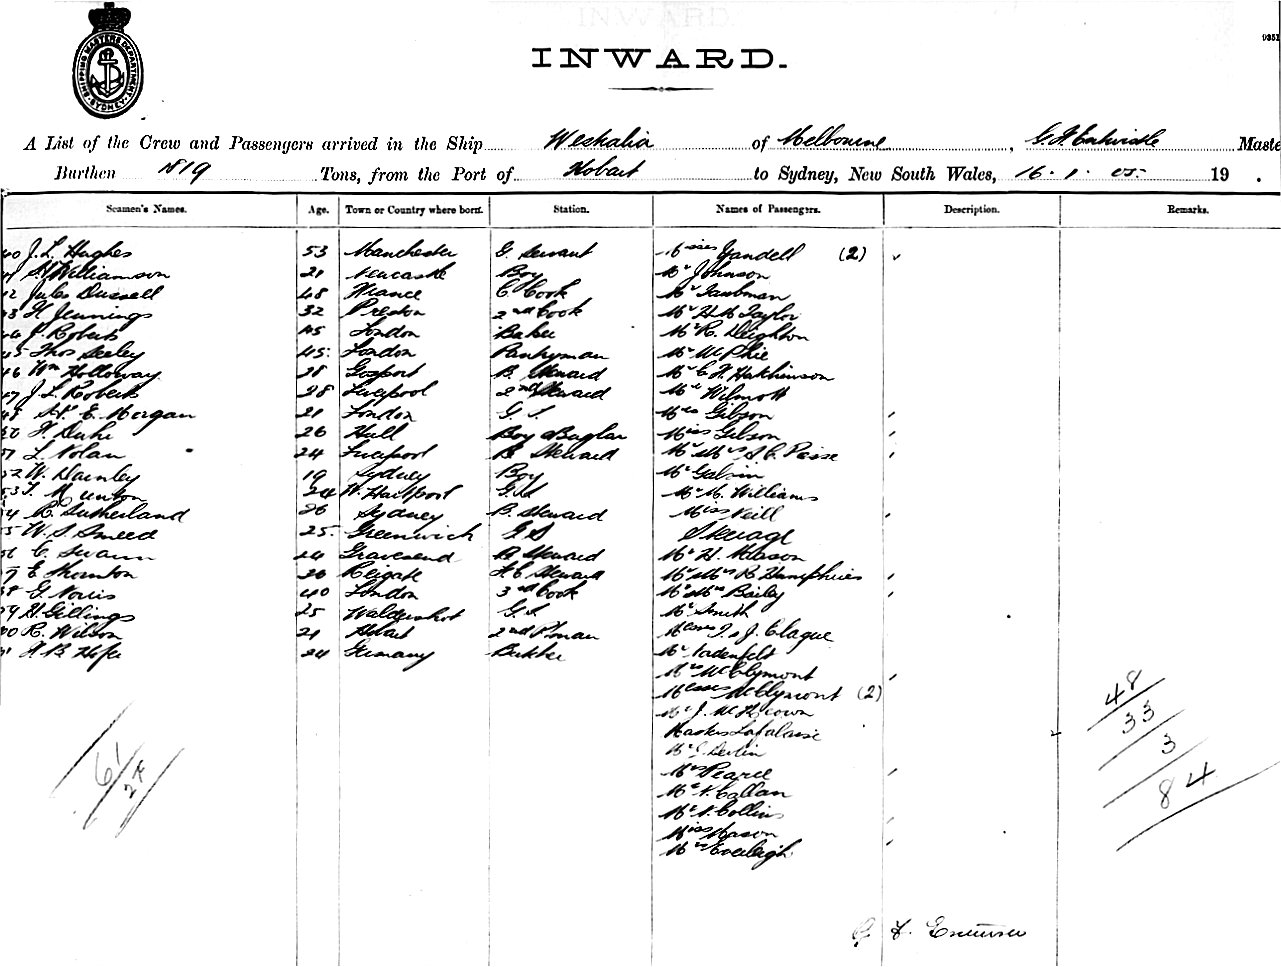 SHIPPING MASTERS DEPARTMENT SYDNEY
INWARD.
A List of the Crew and Passengers arrived in the Ship Westralia of Melbourne, Master
Burthen 1819 Tons, from the Port of Hobart to Sydney, New South Wales, 16. 1. 05 19 .
Seamen's Names. Age. Town or Country where born. Station. Names of Passengers. Description. Remarks.
40 J. L. Hughes 53 Manchester G. Servant Misses Yandell (2)
Williamson 21 Newcastle Boy Mr Johnson
42 Jules Dussell 48 France C. Cook Mr Taubman
43 H. Jennings 32 Preston 2nd Cook Mr H. M. Taylor
44 J. Roberts 45 London Baker Mr R. Deighton
45 Thos Seeley 45 London Pantryman Mr McPhie
46 Wm Holloway 28 Gosport B. Steward Mr C. F. Hutchinson
47 J. L. Roberts 28 Liverpool 2nd Steward Mr Wilmott
48 E. Morgan 21 London G. S. Mrs Gibson
50 F. Duke 26 Hull Boy Bugler Miss Gibson
51 L. Nolan 24 Liverpool B. Steward Mr & Mrs S. C.
52 W. 19 Sydney Boy Mr Galvin
53 T. 24 W. Hartlpool G. S. Mr M. Williams
54 R. Sutherland 26 Sydney B. Steward Miss Neill
55 W. S. Sneed 25 Greenwich G S
56 C. Swann 24 Gravesend B. Steward Mr H. Mason
57 E. Thornton 26 Reigate F. C. Steward Mr & Mrs R. Humphries
58 G. Norris 40 London 3rd Cook Mr & Mrs Bailey
59 H. Gillings 25 G. S. Mr Smith
60 R. Wilson 21 Hobart 2nd P.man Messrs T & J. Clague
24 Germany Mr
Mrs McClymont
Misses McClymont (2)
Mr J. McKeown
Masters
Mr Devlin
Mrs Pearce
Mr Callan
Mr Collins
Miss Mason
Mrs Eveleigh
61/27
48
33
3
84